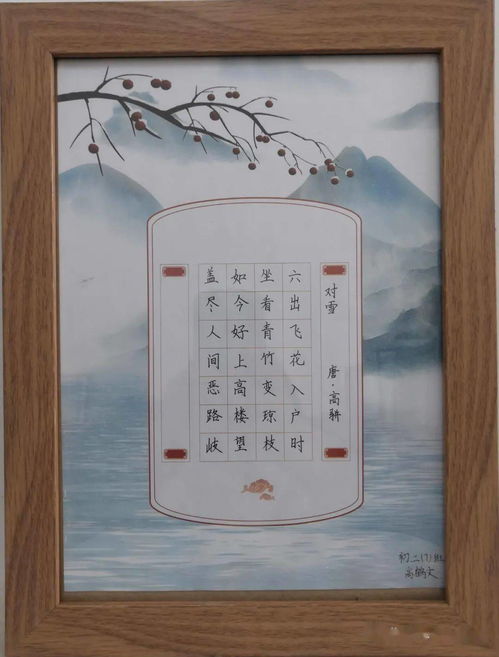 对雪
唐·高骈
六出飞花入户时
坐看青竹变琼枝
如今好上高楼望
盖尽人间恶路岐
初二(7)班
高鹤文